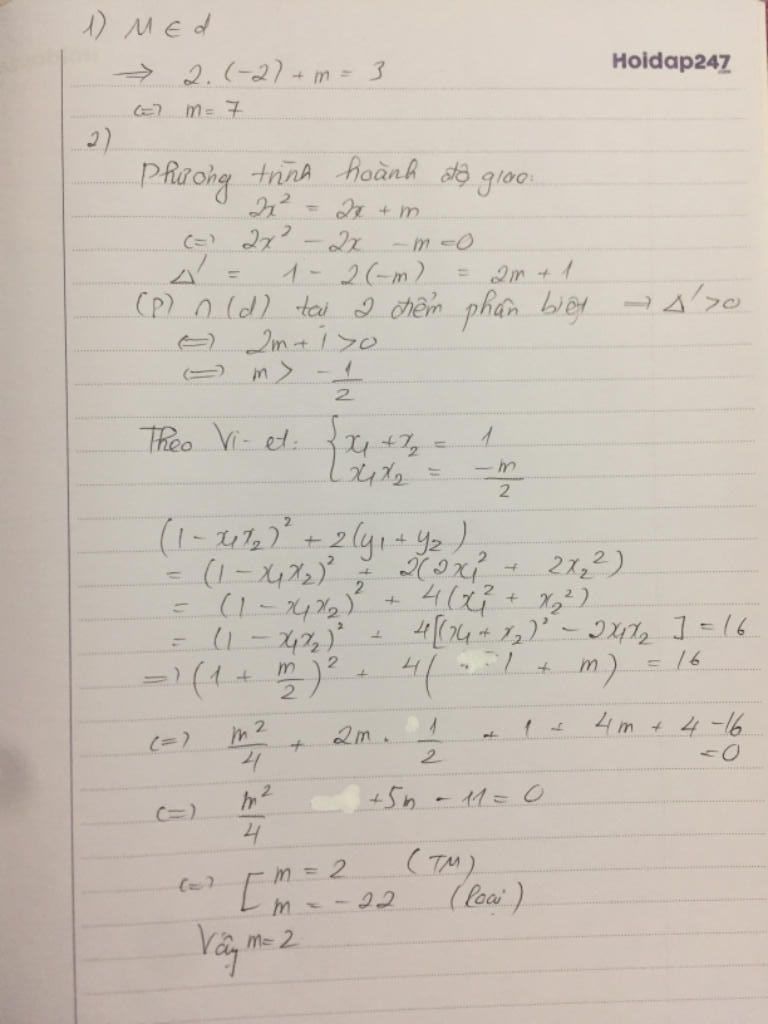 1) M ∈ d
Hoidap247
=> 2.(-2) + m = 3
<=> m = 7
2)
Phương trình hoành độ giao:
2x² = 2x + m
<=> 2x² - 2x - m = 0
Δ' = 1 - 2(-m) = 2m + 1
(P) ∩ (d) tại 2 điểm phân biệt → Δ' > 0
<=> 2m + 1 > 0
<=> m > -1/2
Theo Vi-et: { x₁ + x₂ = 1
x₁x₂ = -m/2
(1 - x₁x₂)² + 2(y₁ + y₂)
= (1 - x₁x₂)² + 2(2x₁² + 2x₂²)
= (1 - x₁x₂)² + 4(x₁² + x₂²)
= (1 - x₁x₂)² + 4[(x₁ + x₂)² - 2x₁x₂] = 16
=> (1 + m/2)² + 4(1 + m) = 16
<=> m²/4 + 2m . 1/2 + 1 + 4m + 4 - 16
= 0
<=> m²/4 + 5m - 11 = 0
<=> [ m = 2 (TM)
m = -22 (loại)
Vậy m = 2